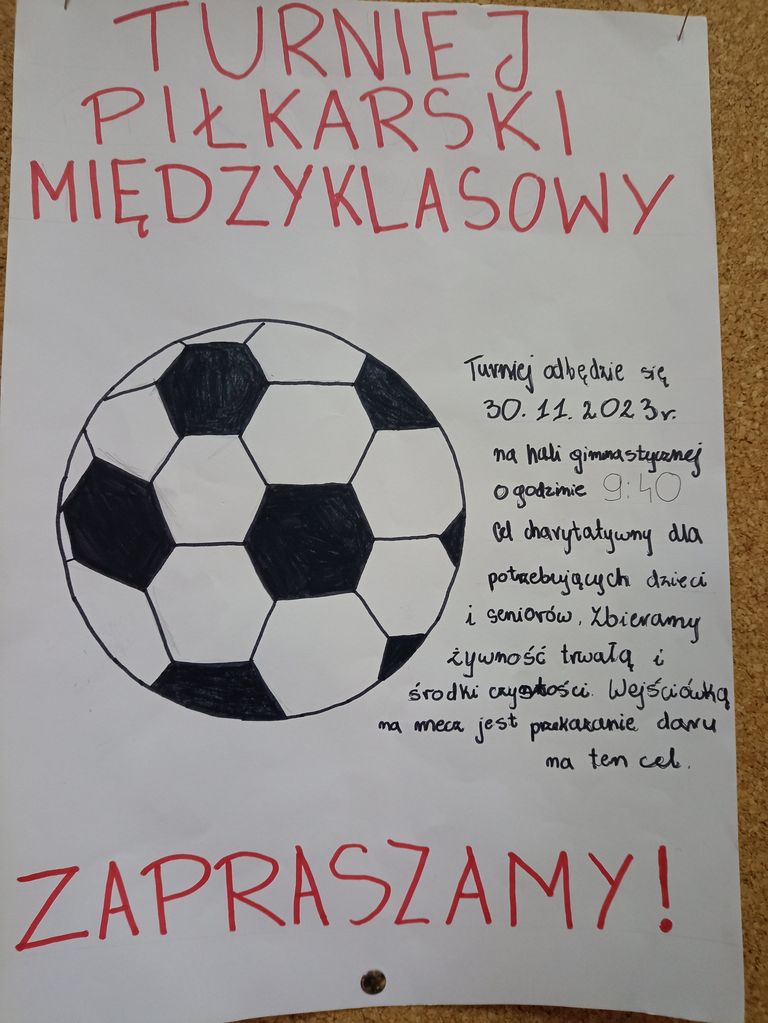 TURNIEJ
PIŁKARSKI
MIĘDZYKLASOWY
Turniej odbędzie się
30.11.2023r.
na hali gimnastycznej
o godzinie 9:40
Cel charytatywny dla
potrzebujących dzieci
i seniorów. Zbieramy
żywność trwałą i
środki czystości. Wejściówką
na mecz jest przekazanie daru
na ten cel.
ZAPRASZAMY!